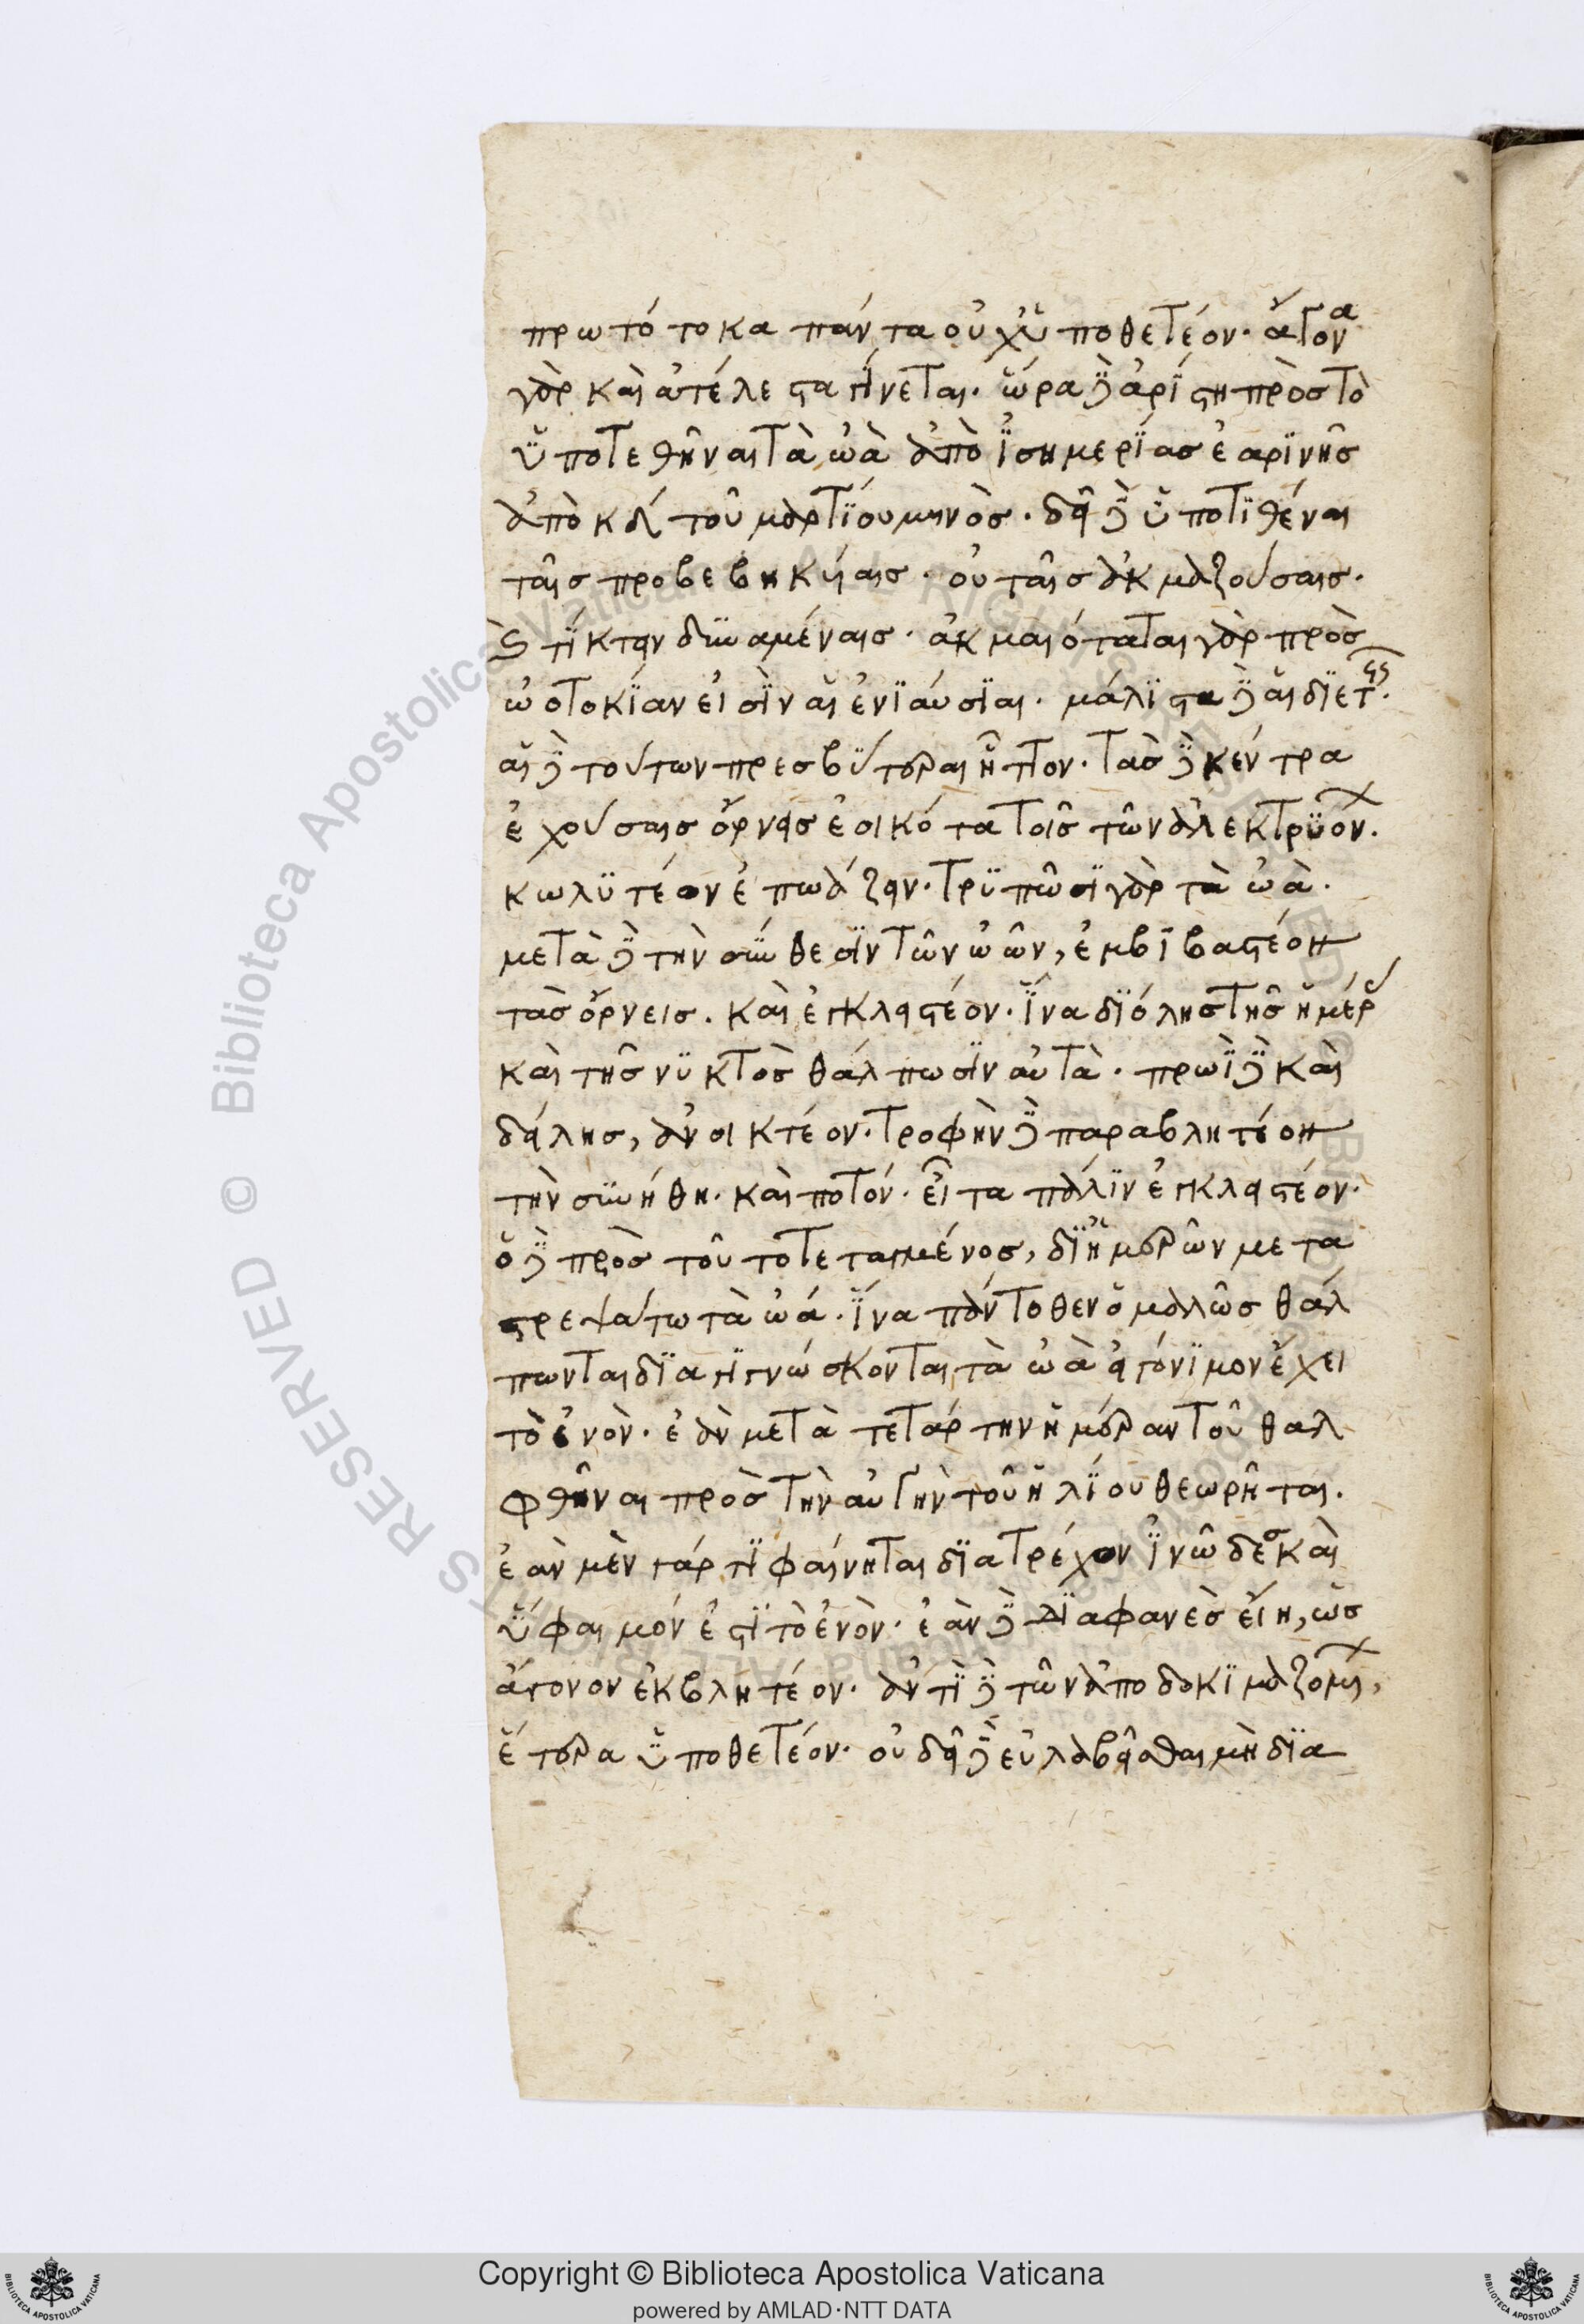 πρωτότοκα πάντα οὐχ ὑποθετέον. ἄγονα
γὰρ καὶ ἀτέλεστα γίνεται. ὥρα δὲ ἀρίστη πρὸς τὸ
ὑποτεθῆναι τὰ ὠὰ ἀπὸ ἰσημερίας ἐαρινῆς
ἀπὸ κδ΄ τοῦ μαρτίου μηνὸς. δεῖ δὲ ὑποτιθέναι
ταῖς προβεβηκυίαις. οὐ ταῖς ἀκμαζούσαις.
ϗ τίκτειν δυναμέναις. ἀκμαιόταται γὰρ πρὸς
ὠοτοκίαν εἰσὶν αἱ ἐνιαύσιαι. μάλιστα δὲ αἱ διετ(εῖς).
αἱ δὲ τούτων πρεσβύτεραι ἧττον. τὰς δὲ κέντρα
ἐχούσαις ὄρνεις ἐοικότα τοῖς τῶν ἀλεκτρυόν(ων).
κωλυτέον ἐπωάζειν. τρυπῶσι γὰρ τὰ ὠὰ.
μετὰ δὲ τὴν σύνθεσιν τῶν ὠῶν, ἐμβιβαστέον
τὰς ὄρνεις. καὶ ἐγκλειστέον. ἵνα δι' ὅλης τῆς ἡμέρ(ας)
καὶ τῆς νυκτὸς θάλπωσιν αὐτὰ. πρωῒ δὲ καὶ
δείλης, ἀνοικτέον. τροφὴν δὲ παραβλητέον
τὴν συνήθη. καὶ ποτόν. εἶτα πάλιν ἐγκλειστέον.
ὁ δὲ πρὸς τοῦτο τεταγμένος, δι' ἡμερῶν μετα
στρεψάτω τὰ ὠά. ἵνα πάντοθεν ὁμαλῶς θάλ
πωνται διαγιγνώσκονται τὰ ὠὰ εἰ γόνιμον ἔχει
τὸ ἐνὸν. ἐὰν μετὰ τετάρτην ἡμέραν τοῦ θαλ
φθῆναι πρὸς τὴν αὐγὴν τοῦ ἡλίου θεωρῆται.
ἐὰν μὲν γάρ τι φαίνηται διατρέχον ἰνῶδες καὶ
ὕφαιμόν ἐστι τὸ ἐνὸν. ἐὰν δὲ διαφανὲς εἴη, ὡς
ἄγονον ἐκβλητέον. ἀντὶ δὲ τῶν ἀποδοκιμαζομ(ένων),
ἕτερα ὑποθετέον. οὐ δεῖ δὲ εὐλαβεῖσθαι μὴ δια
Copyright © Biblioteca Apostolica Vaticana
powered by AMLAD·NTT DATA